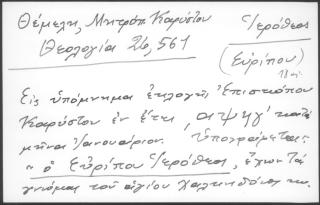 Θέμελη, Μητρόπ. Καρύστου Ἱερόθεος
Θεολογία 26, 561 (Εὐρίπου)
18 αἰ.
Εἰς ὑπόμνημα ἐκλογῆς Ἐπισκόπου
Καρύστου ἐν ἔτει, αψηγʹ κατὰ
μῆνα Ἰανουάριον. Ὑπογράφεται:
"ὁ Εὐρίπου Ἱερόθεος, ἔχων
γνώμας τοῦ ἁγίου Χαλκηδόνος κυ.